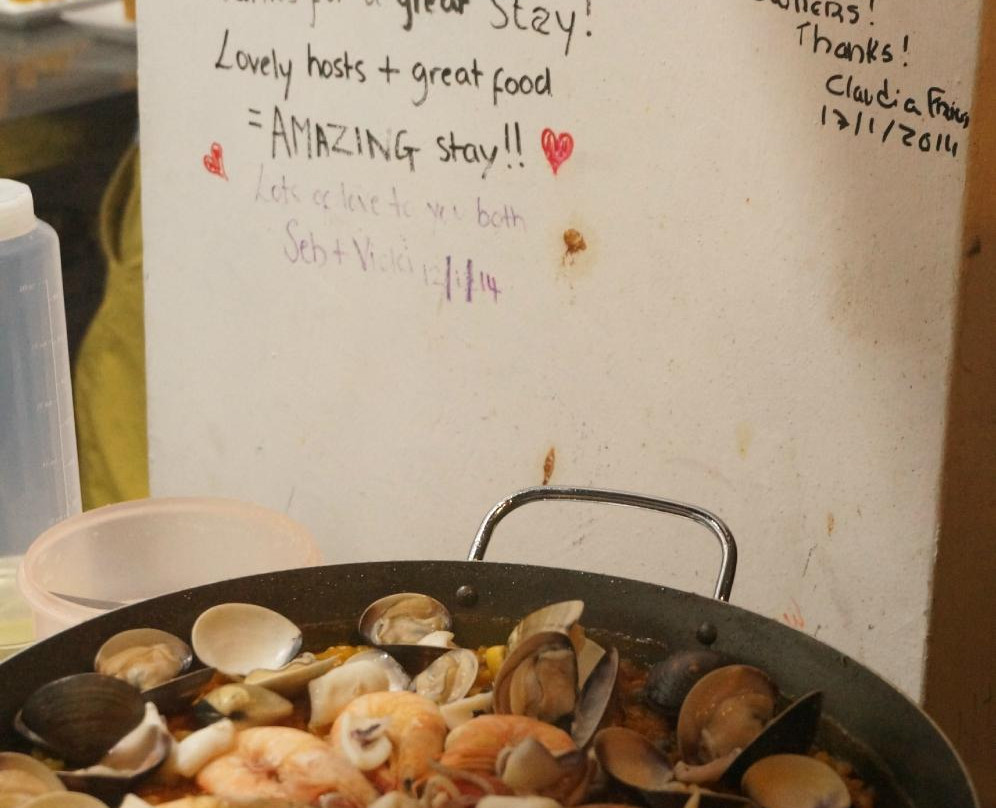 for a great Stay!
Lovely hosts + great food
= AMAZING stay!!
Lots of love to you both
Seb + Vicki 12/1/14
Thanks!
Claudia
12/1/2014